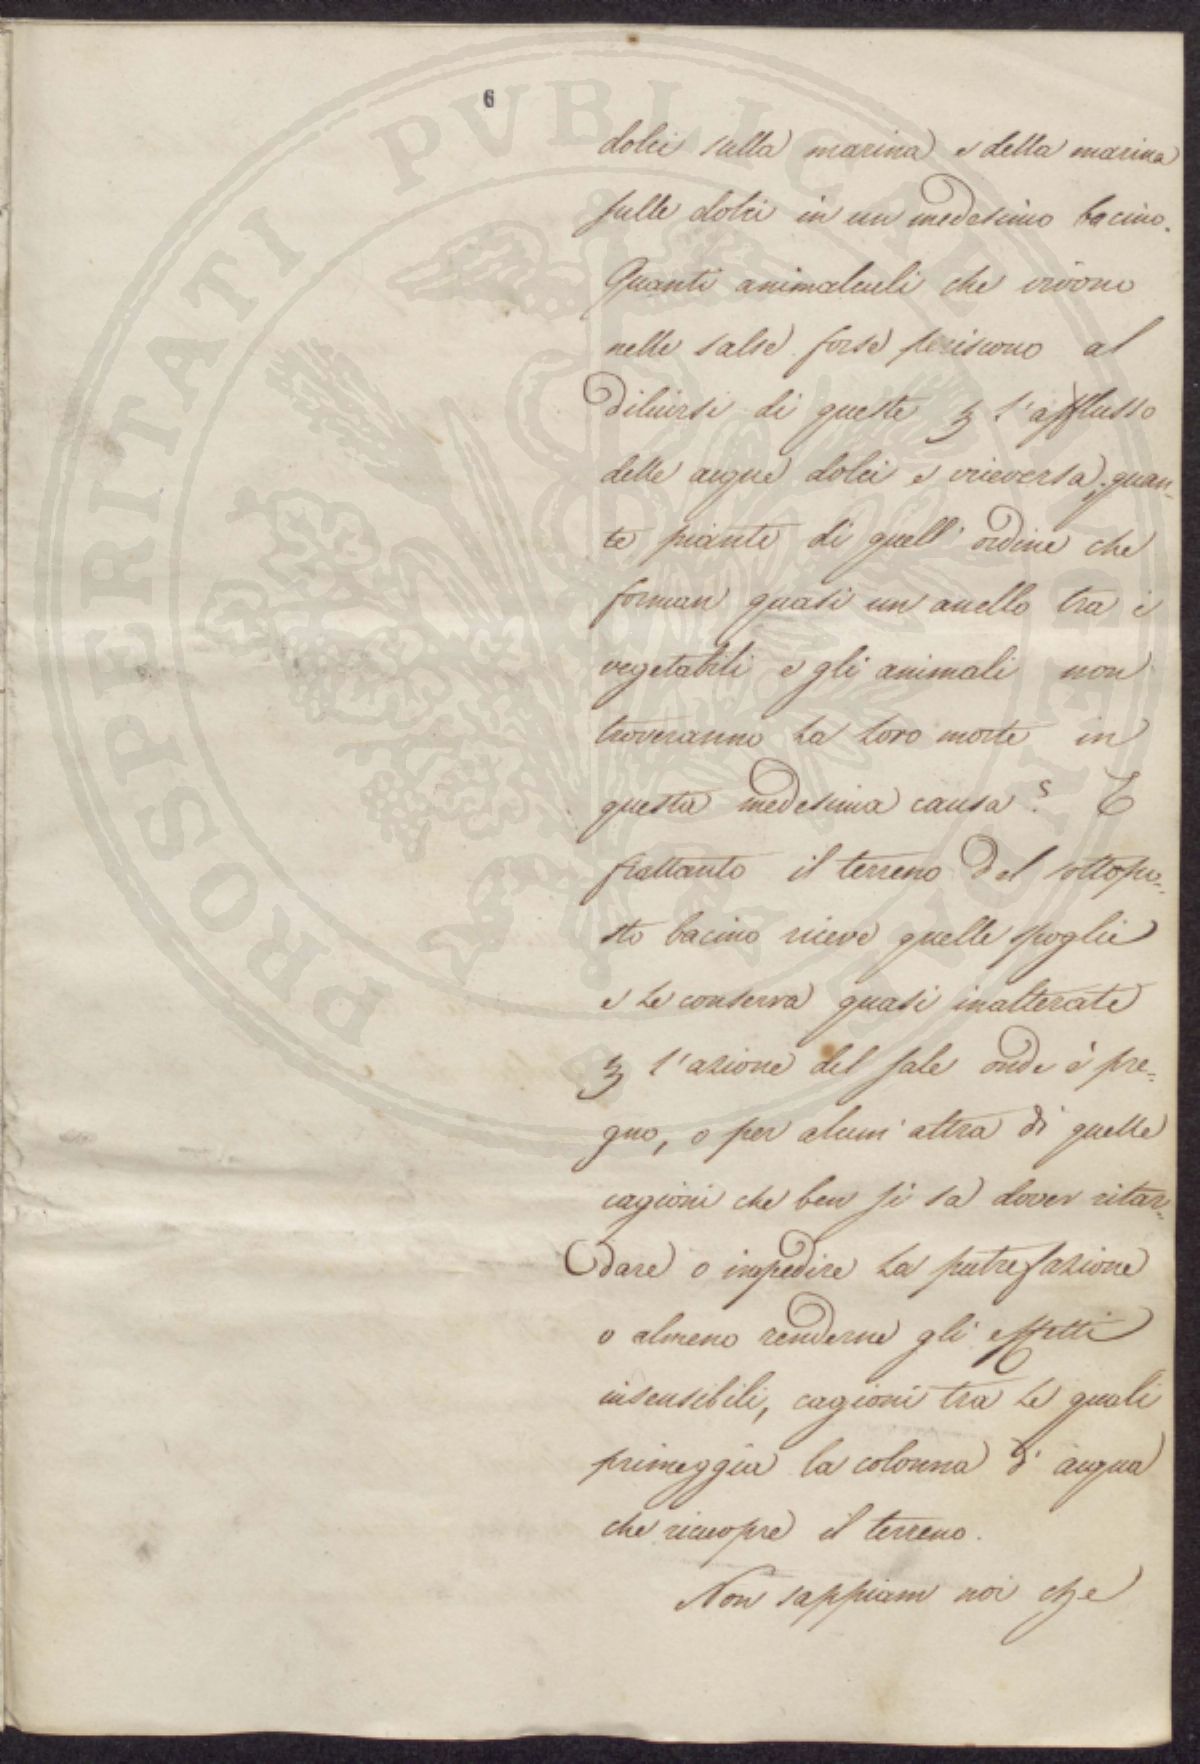 6
dolci sulla marina e della marina
sulle dolci in un medesimo bacino.
Quanti animalculi che vivono
nelle salse forse periscono al
diluirsi di queste l'afflusso
delle acque dolci e viceversa, quan=
te piante di quell'ordine che
forman quasi un anello tra i
vegetabili e gli animali non
troveranno la loro morte in
questa medesima causa? E
frattanto il terreno del sottopo=
sto bacino riceve quelle spoglie
e le conserva quasi inalterate
l'azione del sale onde è pre=
gno, o per alcun'altra di quelle
cagioni che ben si sa dover ritar=
dare o impedire la putrefazione
o almeno renderne gli effetti
insensibili, cagioni tra le quali
primeggia la colonna d'acqua
che ricuopre il terreno.
Non sappiam noi che
PROSPERITATI PVBLICAE